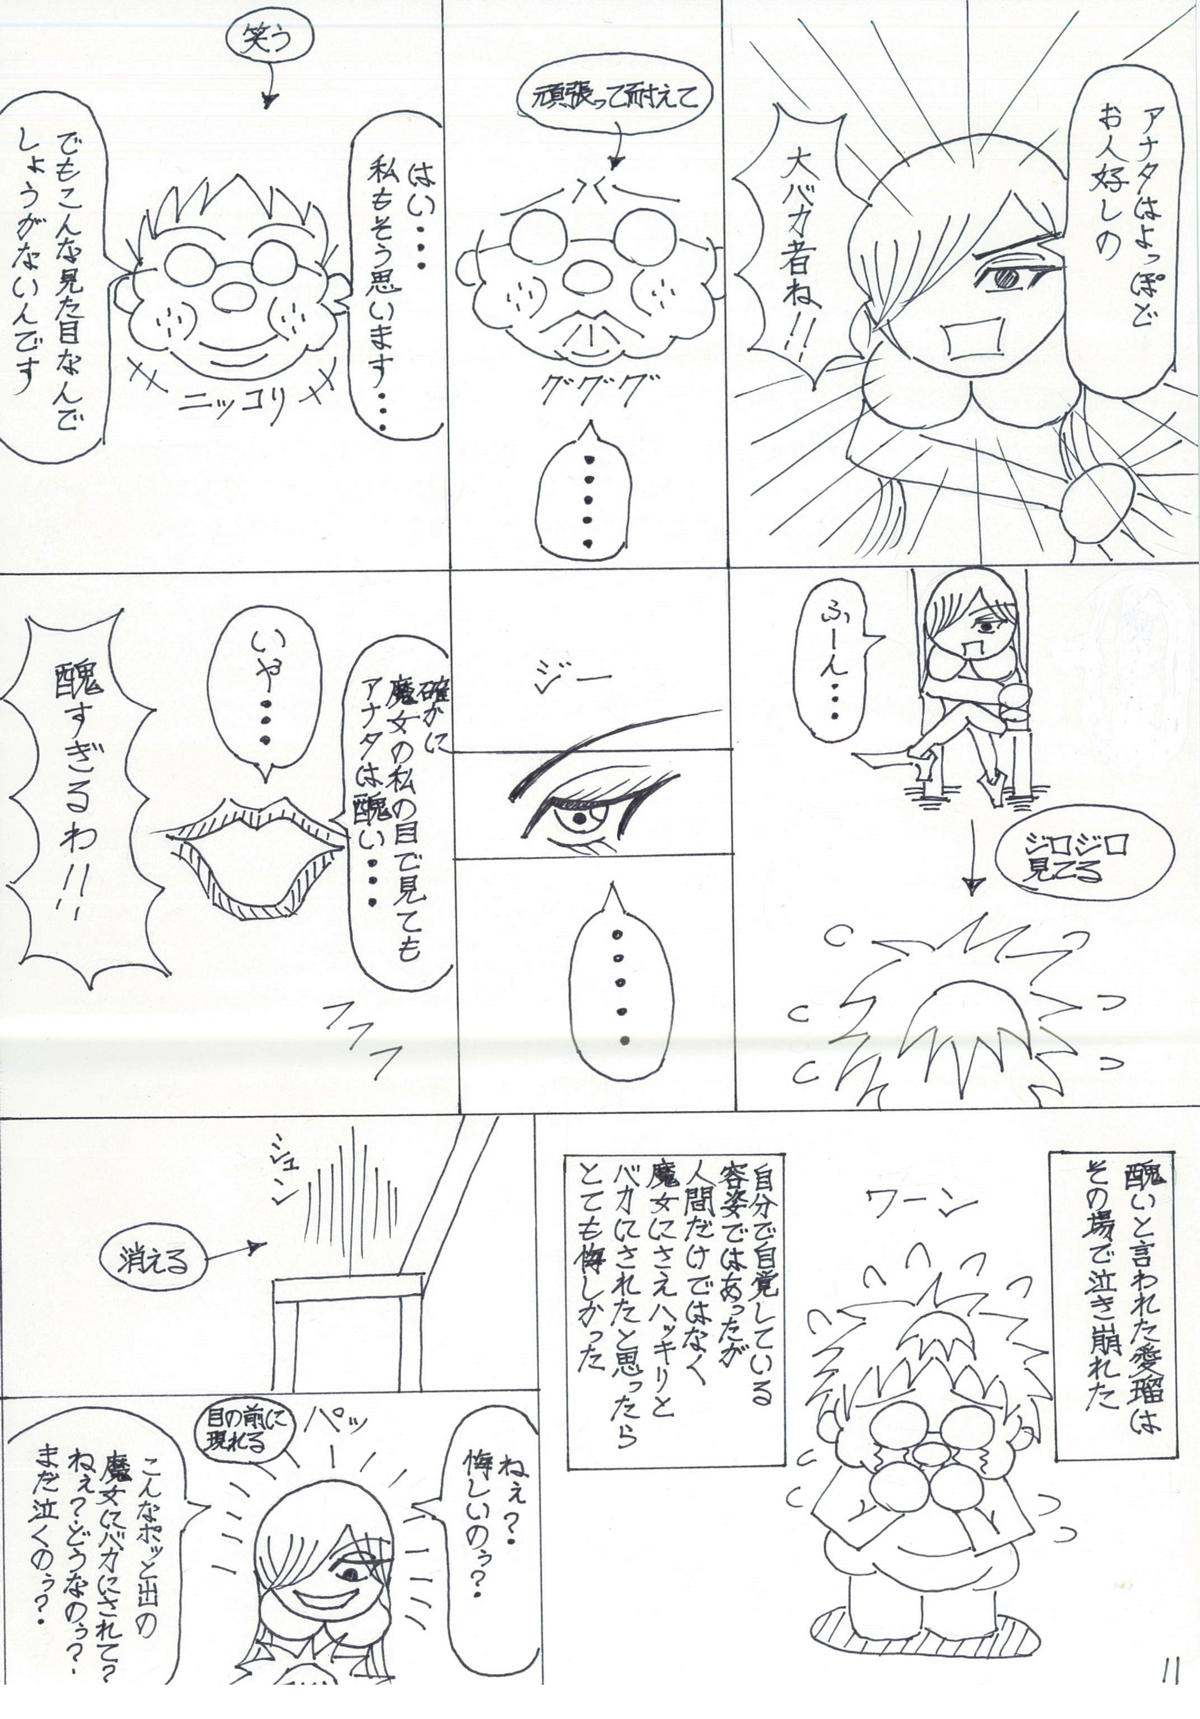 アナタはよっぽど
お人好しの
大バカ者ね!!
頑張って耐えて
ググググ
・・・・・
笑う
はい・・・
私もそう思います・・・・
ニッコリ
でもこんな見た目なんで
しょうがないんです
ふーん・・・
ジロジロ
見てる
ジー
・・・・・
確かに
魔女の私の目で見ても
アナタは醜い・・・・
いや・・・・
醜すぎるわ!!!
フフフ
醜いと言われた愛瑠は
その場で泣き崩れた
ワーン
自分で自覚している
容姿ではあったが
人間だけではなく
魔女にさえハッキリと
バカにされたと思ったら
とても悔しかった
シュン
消える
ねぇ?・
悔しいのぅ?・
パッ
目の前に
現れる
こんなポッと出の
魔女にバカにされて?
ねぇ?・どうなのぅ?・
まだ泣くのぅ?・
11